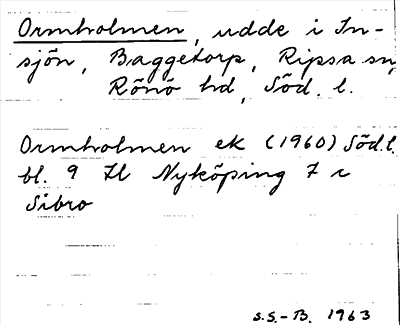 Ormholmen, udde i In-
sjön, Baggetorp, Ripsa sn,
Rönö hd, Söd. l.
Ormholmen ek (1960) Söd. l.
bl. 9 Nyköping 7 c
Sibro
S.S.-B. 1963